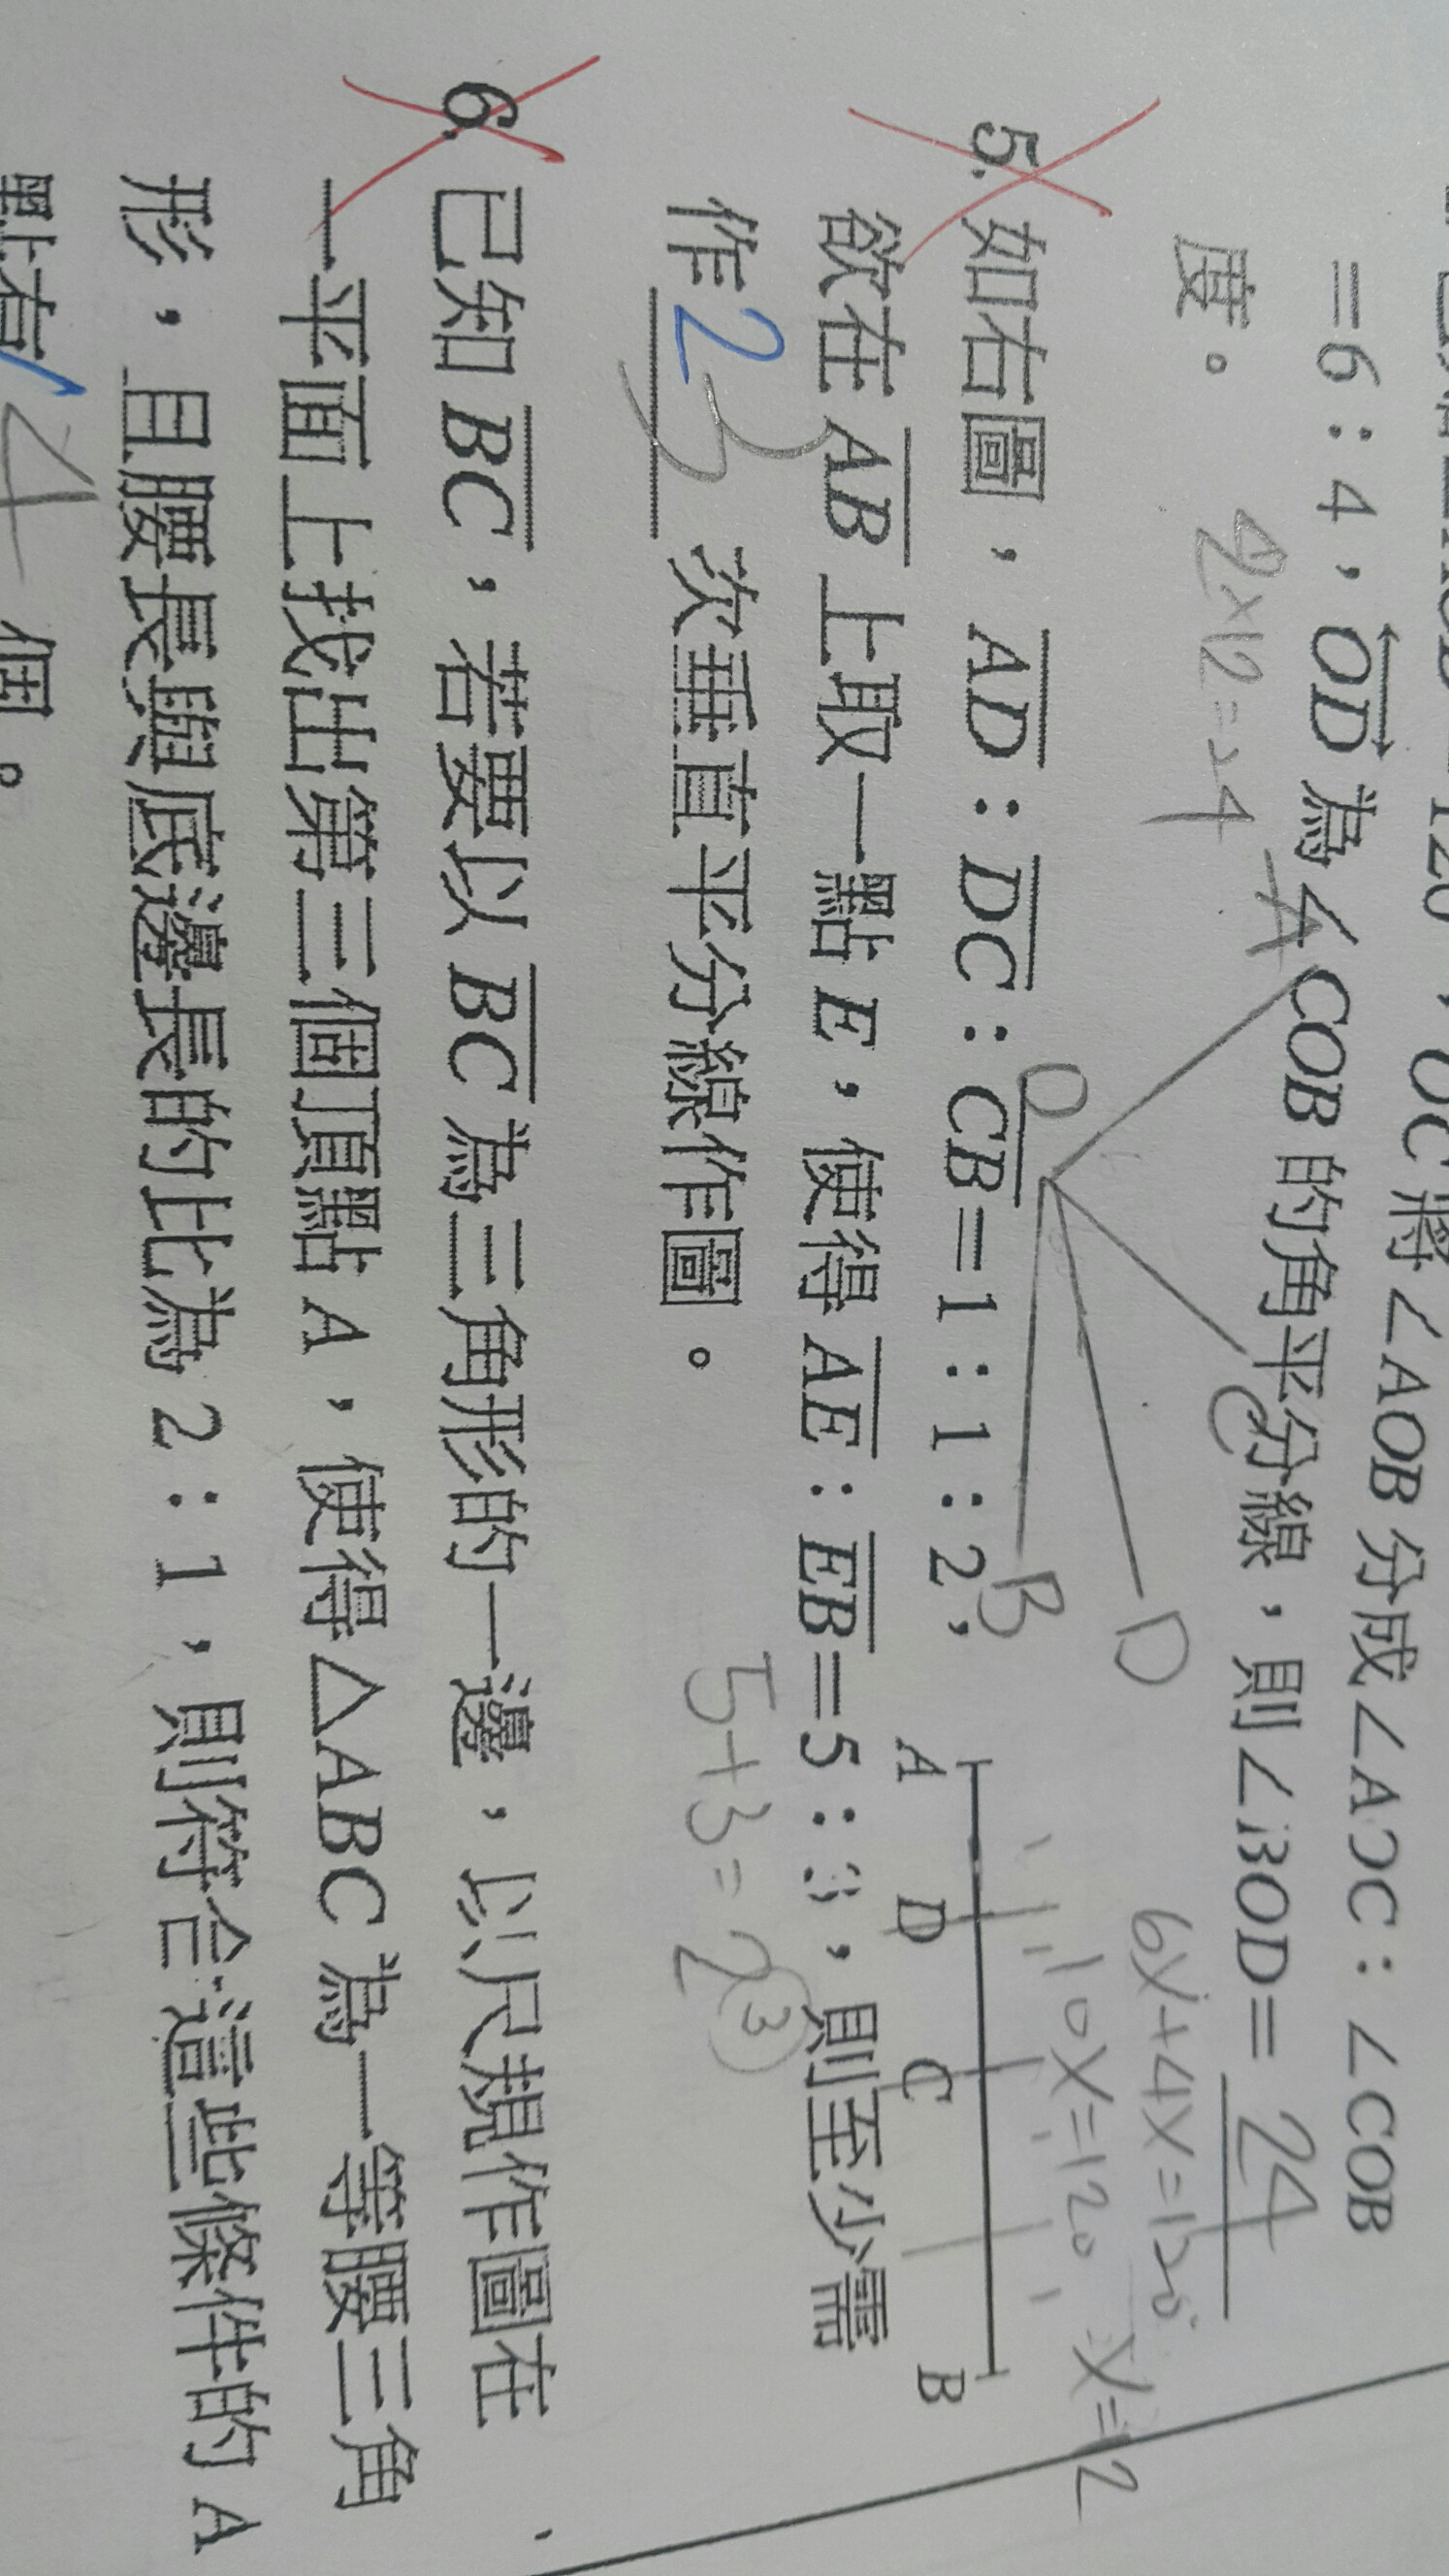 =6:4,OD為∠COB的角平分線,則∠BOD= 24
度。
2×12=24
6x+4x=120°
10x=120
x=12
A
O
C
D
B
5.如右圖,AD:DC:CB=1:1:2,
欲在AB上取一點E,使得AE:EB=5:3,則至少需
作 2 3 次垂直平分線作圖。
5+3=2③
A D C B
6.已知BC,若要以BC為三角形的一邊,以尺規作圖在
一平面上找出第三個頂點A,使得△ABC為一等腰三角
形,且腰長與底邊長的比為2:1,則符合這些條件的A
點有 4 個。